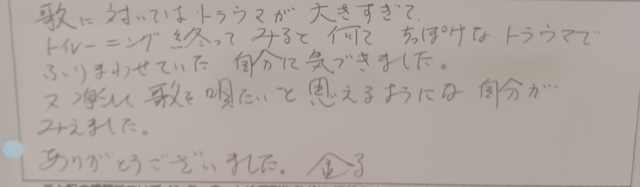 歌に対いてはトラウマが大きすぎて、
トレーニング終ってみると何てちっぽけなトラウマで
ふりまわせていた自分に気づきました。
又、楽しく歌を唄たいと思えるようにな自分が
みえました。
ありがとうございました。